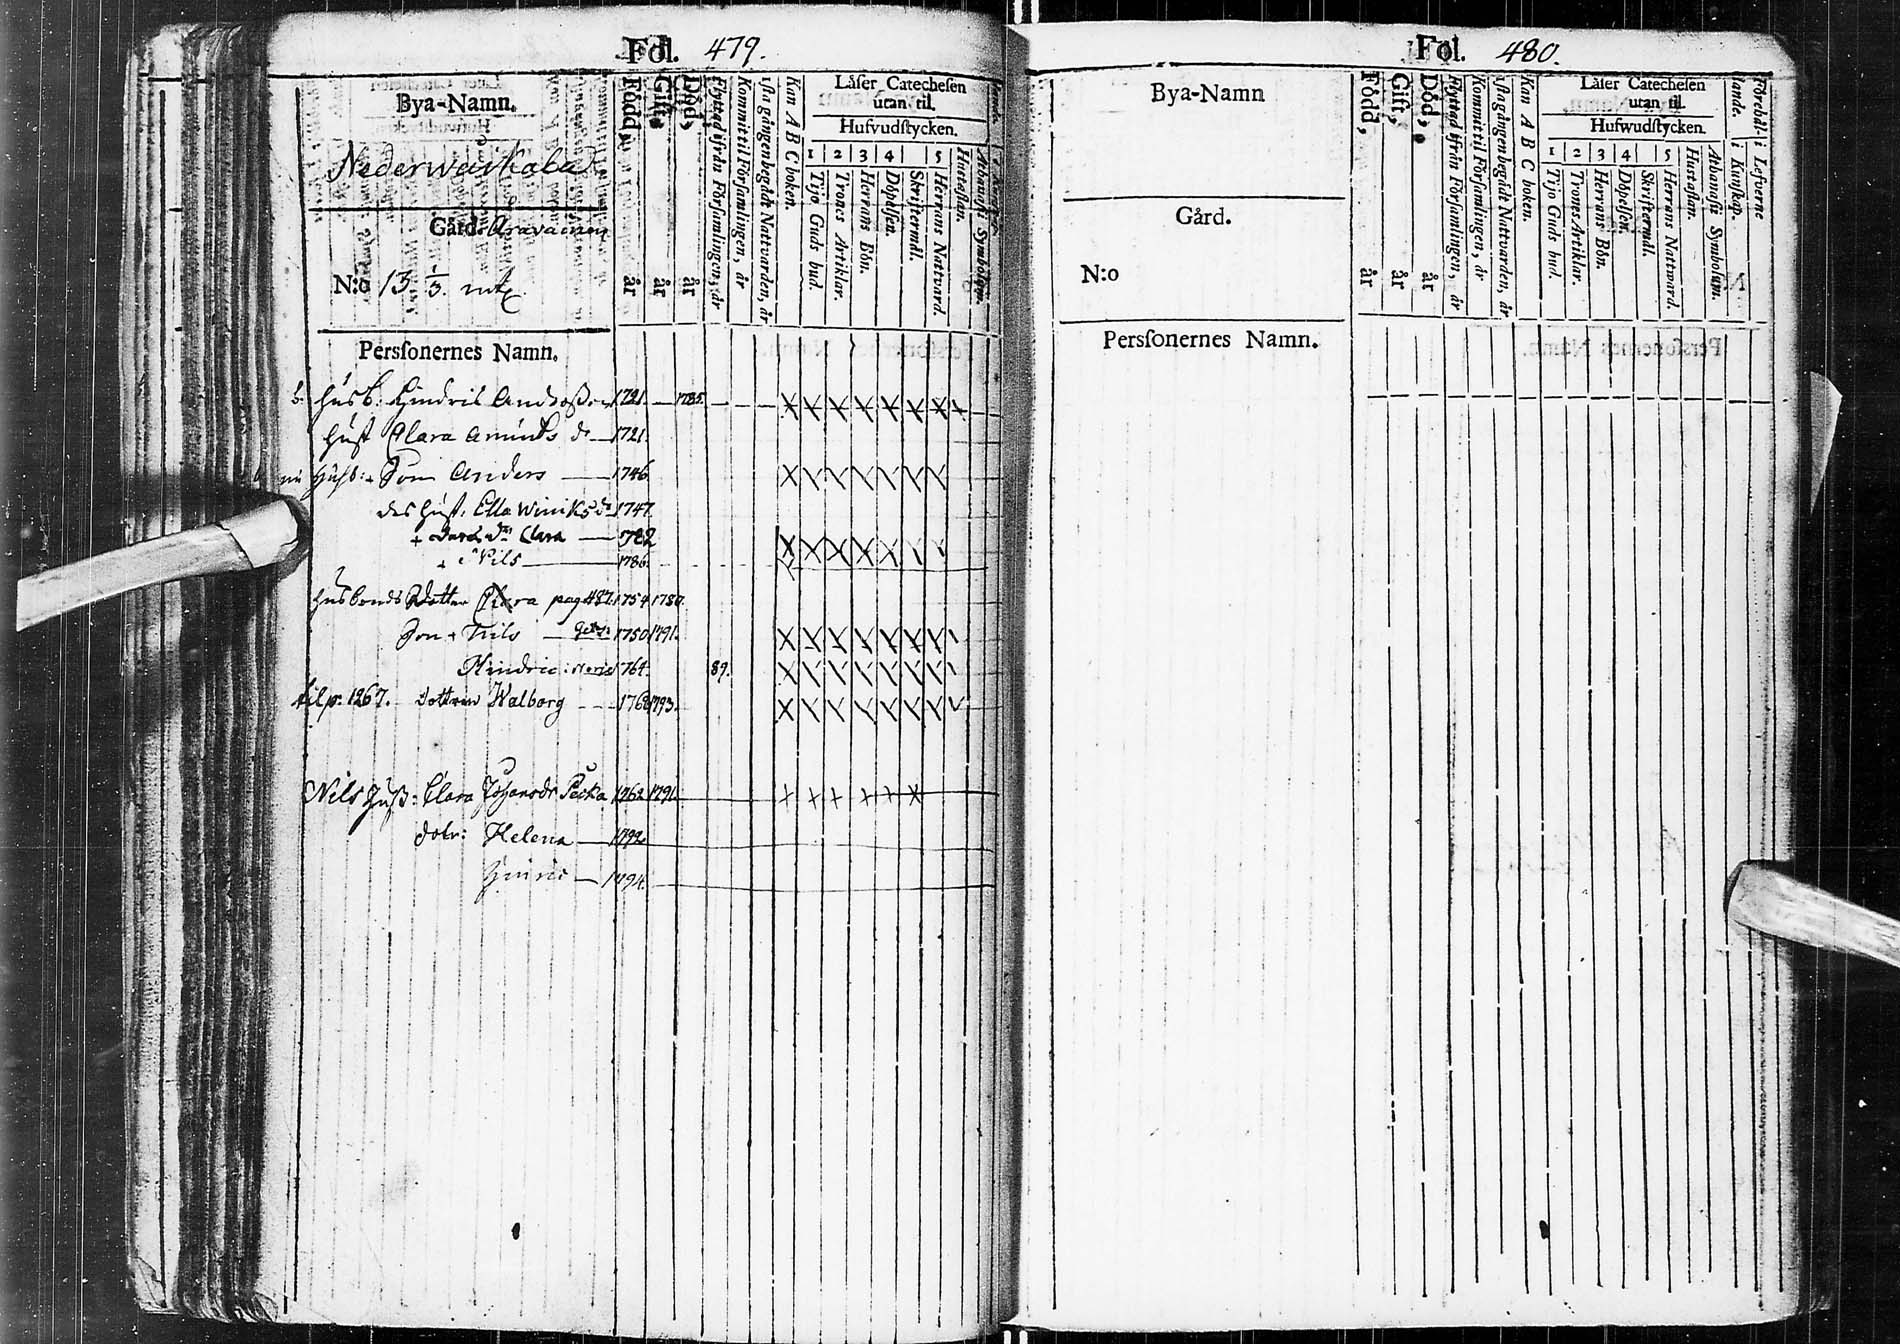 Fol. 479.
Bya-Namn.
Nederweihala
Gård. Aravainen
N:o 13 1/3. mtl.
Född, år
Gift, år
Död, år
Flyttad ifrån Församlingen, år
Kommit til Församlingen, år
1sta gången begådt Nattvarden, år
Kan A B C boken.
Låser Catechesen
utan til.
Hufvudstycken.
1 2 3 4 5
Tijo Guds bud.
Trones Artiklar.
Herrans Bön.
Döpelsen.
Skriftermål.
Herrans Nattvard.
Hustaflan.
Athanasii Symbolum.
Personernes Namn.
Husb: Hindric Anderss. 1721. 1785.
Hust Clara Amunds d. 1721.
nu Husb: + Son Anders 1746
des Hust. Ella Winiks d. 1747.
+ dr Clara 1782
+ Nils 1786.
Husbonds Dotter Clara pag 487. 1754. 1780.
Son + Nils 1750 1791.
Hindric 1764. 89.
til p: 1267. Dottren Walborg 1768 1793.
Nils Hust: Clara Johansdr Pecka 1762 1791.
dotr: Helena 1792
Hinric 1794.
Fol. 480.
Bya-Namn
Gård.
N:o
Född, år
Gift, år
Död, år
Flyttad ifrån Församlingen, år
Kommit til Församlingen, år
1sta gången begådt Nattvarden, år
Kan A B C boken.
Låser Catechesen
utan til.
Hufwudstycken.
1 2 3 4 5
Tijo Guds bud.
Trones Artiklar.
Herrans Bön.
Döpelsen.
Skriftermål.
Herrans Natward.
Hustaflan.
Athanasii Symbolum.
i Kunskap.
i Lefverne
Personernes Namn.